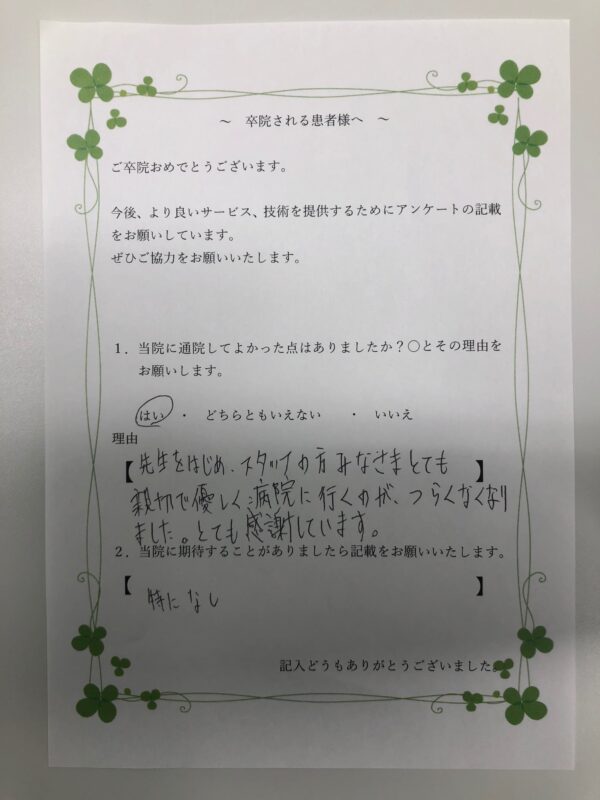 ～ 卒院される患者様へ ～
ご卒院おめでとうございます。
今後、より良いサービス、技術を提供するためにアンケートの記載
をお願いしています。
ぜひご協力をお願いいたします。
1．当院に通院してよかった点はありましたか？○とその理由を
お願いします。
はい ・ どちらともいえない ・ いいえ
理由
【先生をはじめ、スタッフの方みなさまとても】
親切で優しく病院に行くのが、つらくなくなり
ました。とても感謝しています。
2．当院に期待することがありましたら記載をお願いいたします。
【 】
特になし
記入どうもありがとうございました。